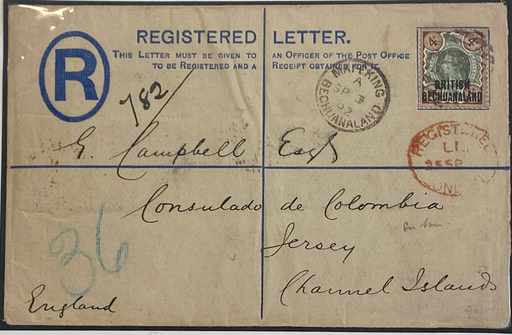 REGISTERED LETTER.
THIS LETTER MUST BE GIVEN TO AN OFFICER OF THE POST OFFICE
TO BE REGISTERED AND A RECEIPT OBTAINED FOR
R
782
MAFEKING
A
SP 3
92
BECHUANALAND
4d 4d
BRITISH
BECHUANALAND
REGISTERED
25 SP
G. Campbell Esq
Consulado de Colombia
Jersey
Channel Islands
36
England